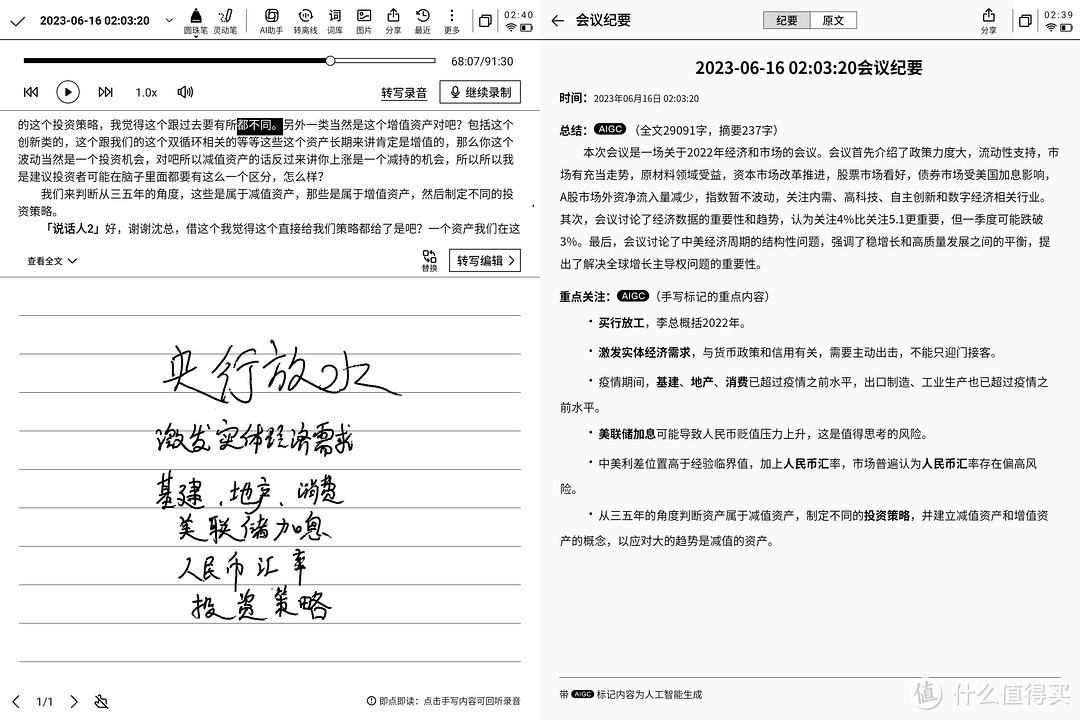 2023-06-16 02:03:20
圆珠笔 灵动笔 AI助手 转离线 词库 图片 分享 最近 更多
02:40
68:07/91:30
1.0x
转写录音
继续录制
的这个投资策略，我觉得这个跟过去要有所都不同。另外一类当然是这个增值资产对吧？包括这个
创新类的，这个跟我们的这个双循环相关的等等这些这个资产长期来讲肯定是增值的，那么你这个
波动当然是一个投资机会，对吧所以减值资产的话反过来讲你上涨是一个减持的机会，所以所以我
是建议投资者可能在脑子里面都要有这么一个区分，怎么样？
我们来判断从三五年的角度，这些是属于减值资产，那些是属于增值资产，然后制定不同的投
资策略。
「说话人2」好，谢谢沈总，借这个我觉得这个直接给我们策略都给了是吧？一个资产我们在这
查看全文
替换
转写编辑
央行放水
激发实体经济需求
基建、地产、消费
美联储加息
人民币汇率
投资策略
1/1
即点即读：点击手写内容可回听录音
会议纪要
纪要 原文
分享
02:39
2023-06-16 02:03:20会议纪要
时间：2023年06月16日 02:03:20
总结：AIGC（全文29091字，摘要237字）
本次会议是一场关于2022年经济和市场的会议。会议首先介绍了政策力度大，流动性支持，市
场有充当走势，原材料领域受益，资本市场改革推进，股票市场看好，债券市场受美国加息影响，
A股市场外资净流入量减少，指数暂不波动，关注内需、高科技、自主创新和数字经济相关行业。
其次，会议讨论了经济数据的重要性和趋势，认为关注4%比关注5.1更重要，但一季度可能跌破
3%。最后，会议讨论了中美经济周期的结构性问题，强调了稳增长和高质量发展之间的平衡，提
出了解决全球增长主导权问题的重要性。
重点关注：AIGC（手写标记的重点内容）
· 买行放工，李总概括2022年。
· 激发实体经济需求，与货币政策和信用有关，需要主动出击，不能只迎门接客。
· 疫情期间，基建、地产、消费已超过疫情之前水平，出口制造、工业生产也已超过疫情之
前水平。
· 美联储加息可能导致人民币贬值压力上升，这是值得思考的风险。
· 中美利差位置高于经验临界值，加上人民币汇率，市场普遍认为人民币汇率存在偏高风
险。
· 从三五年的角度判断资产属于减值资产，制定不同的投资策略，并建立减值资产和增值资
产的概念，以应对大的趋势是减值的资产。
带 AIGC 标记内容为人工智能生成
值 什么值得买